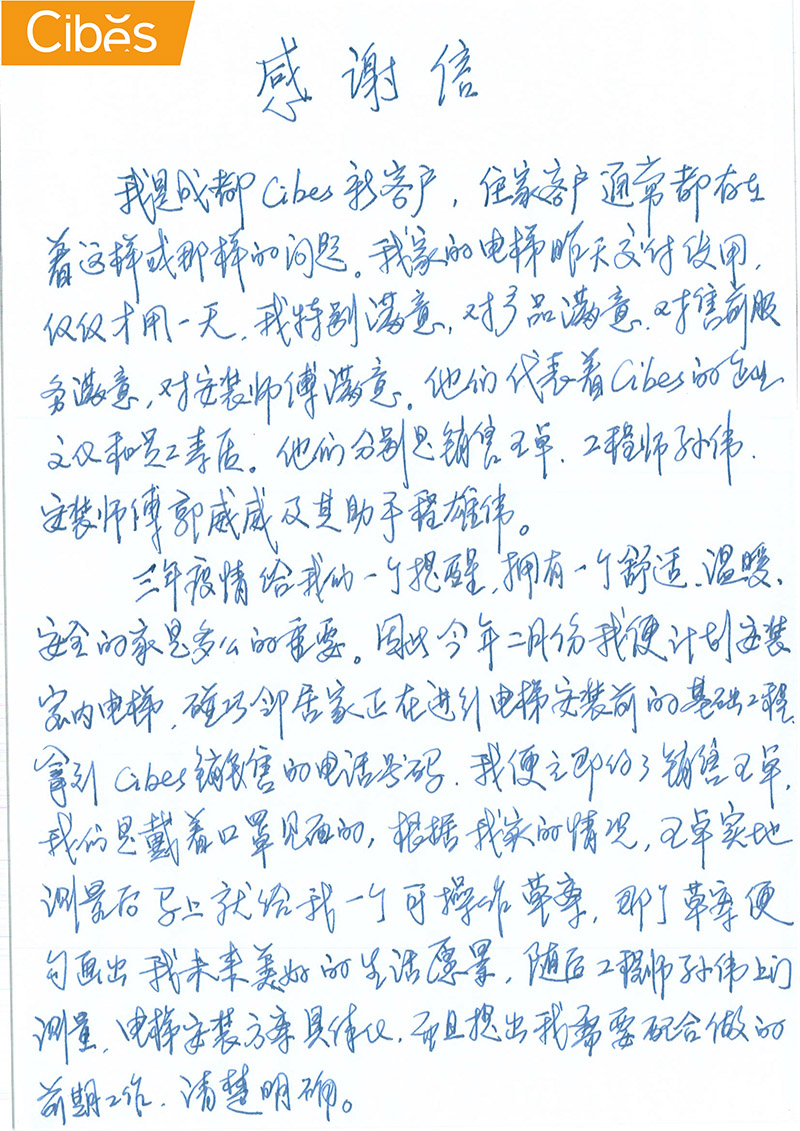 Cibes
感谢信
我是成都Cibes新客户，住家客户通常都存在
着这样或那样的问题。我家的电梯昨天交付使用，
仅仅才用一天，我特别满意，对产品满意，对售前服
务满意，对安装师傅满意。他们代表着Cibes的企业
文化和员工素质。他们分别是销售王卓、工程师孙伟、
安装师傅郭威威及其助手程雄伟。
三年疫情给我们一个提醒，拥有一个舒适、温暖、
安全的家是多么的重要。因此今年二月份我便计划安装
室内电梯，碰巧邻居家正在进行电梯安装前的基础工程，
拿到Cibes销售的电话号码，我便立即约了销售王卓，
我们是戴着口罩见面的，根据我家的情况，王卓实地
测量后马上就给我一个可操作草案，那个草案便
勾画出我未来美好的生活愿景，随后工程师孙伟上门
测量，电梯安装方案具体化，而且提出我需要配合做的
前期工作，清楚明确。